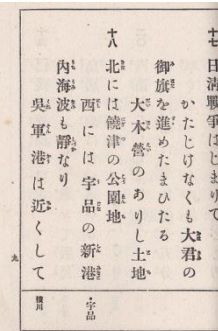 十七 日清戰爭はじまりて
かたじけなくも大君の
御旗を進めたまひたる
大本營のありし土地
十八 北には饒津の公園地
西には宇品の新港
內海波も靜なり
吳軍港は近くして
九
橫川
宇品